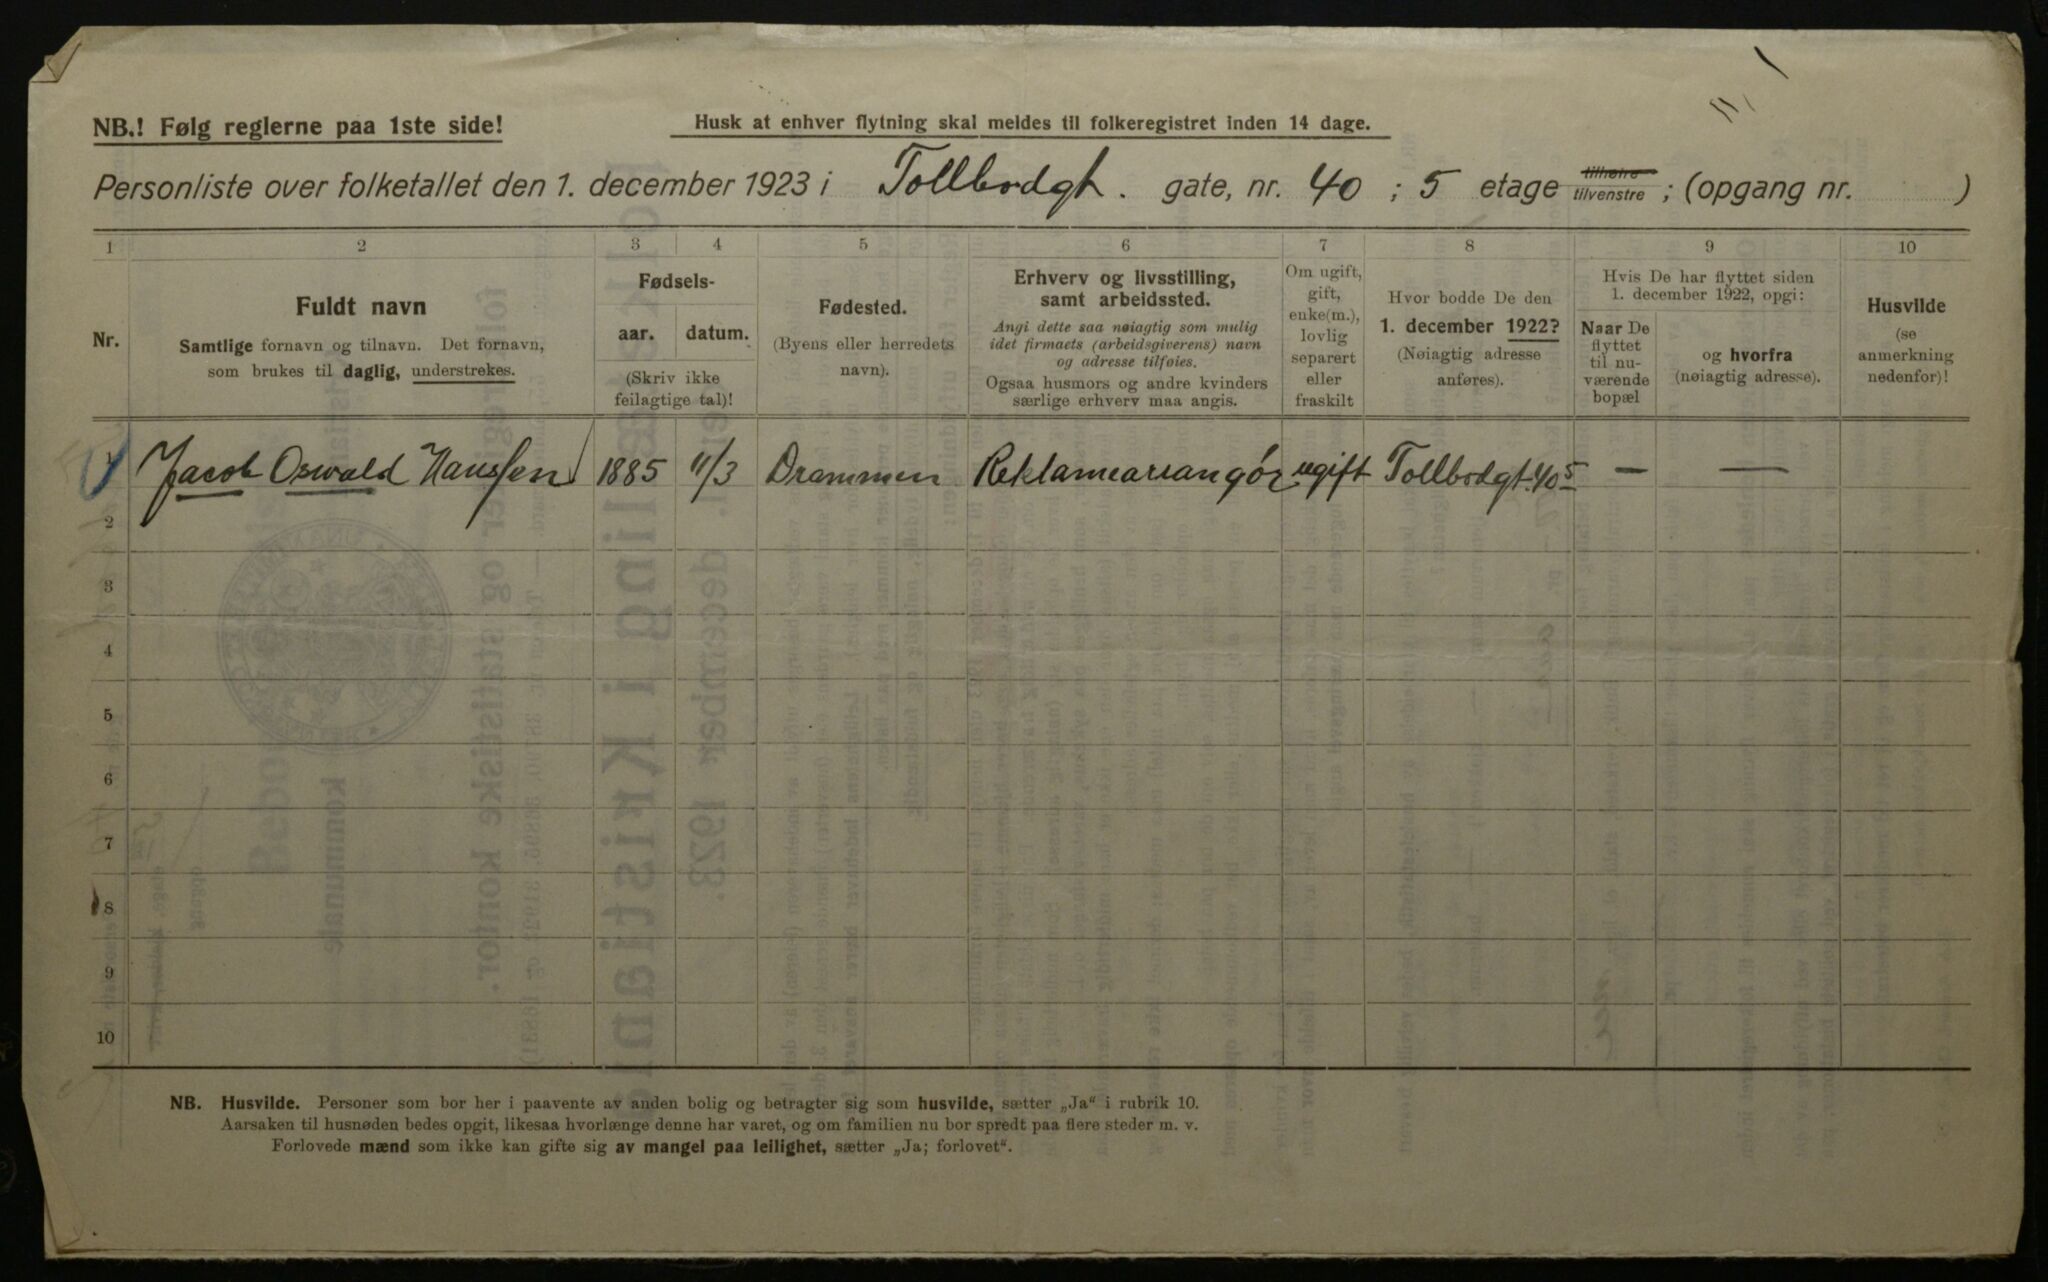 NB.! Følg reglerne paa 1ste side!
Husk at enhver flytning skal meldes til folkeregistret inden 14 dage.
Personliste over folketallet den 1. december 1923 i Tollbodgt. gate, nr. 40 ; 5 etage tilhøire tilvenstre ; (opgang nr. )
1 2 3 4 5 6 7 8 9 10
Nr.
Fuldt navn
Samtlige fornavn og tilnavn. Det fornavn,
som brukes til daglig, understrekes.
Fødsels-
aar. datum.
(Skriv ikke
feilagtige tal)!
Fødested.
(Byens eller herredets
navn).
Erhverv og livsstilling,
samt arbeidssted.
Angi dette saa nøiagtig som mulig
idet firmaets (arbeidsgiverens) navn
og adresse tilføies.
Ogsaa husmors og andre kvinders
særlige erhverv maa angis.
Om ugift,
gift,
enke(m.),
lovlig
separert
eller
fraskilt
Hvor bodde De den
1. december 1922?
(Nøiagtig adresse
anføres).
Hvis De har flyttet siden
1. december 1922, opgi:
Naar De
flyttet
til nu-
værende
bopæl
og hvorfra
(nøiagtig adresse).
Husvilde
(se
anmerkning
nedenfor)!
1 Jacob Oswald Hanssen 1885 11/3 Drammen Reklamearrangør ugift Tollbodgt. 40 5 — —
2
3
4
5
6
7
8
9
10
NB. Husvilde. Personer som bor her i paavente av anden bolig og betragter sig som husvilde, sætter „Ja" i rubrik 10.
Aarsaken til husnøden bedes opgit, likesaa hvorlænge denne har varet, og om familien nu bor spredt paa flere steder m. v.
Forlovede mænd som ikke kan gifte sig av mangel paa leilighet, sætter „Ja; forlovet".